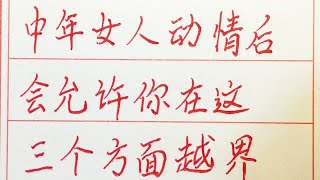 中年女人动情后
会允许你在这
三个方面越界